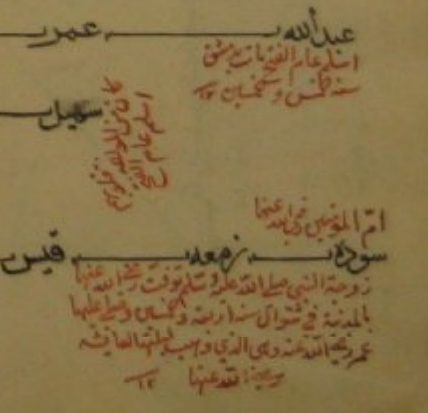 عبدالله عمر
اسلم عام الفتح مات بدمشق
سنة خمس وخمسين ١٢
سهيل
اسلم عام الفتح
ام المؤمنين رضي الله عنها
سوده زمعه قيس
زوجة النبي صلى الله عليه وسلم توفت رضي الله عنها
بالمدينة في شوال سنة اربعة وخمسين وصلى عليها
رضي الله عنه وهي الذي وهبت ليلتها لعائشه
الله عنها ١٢